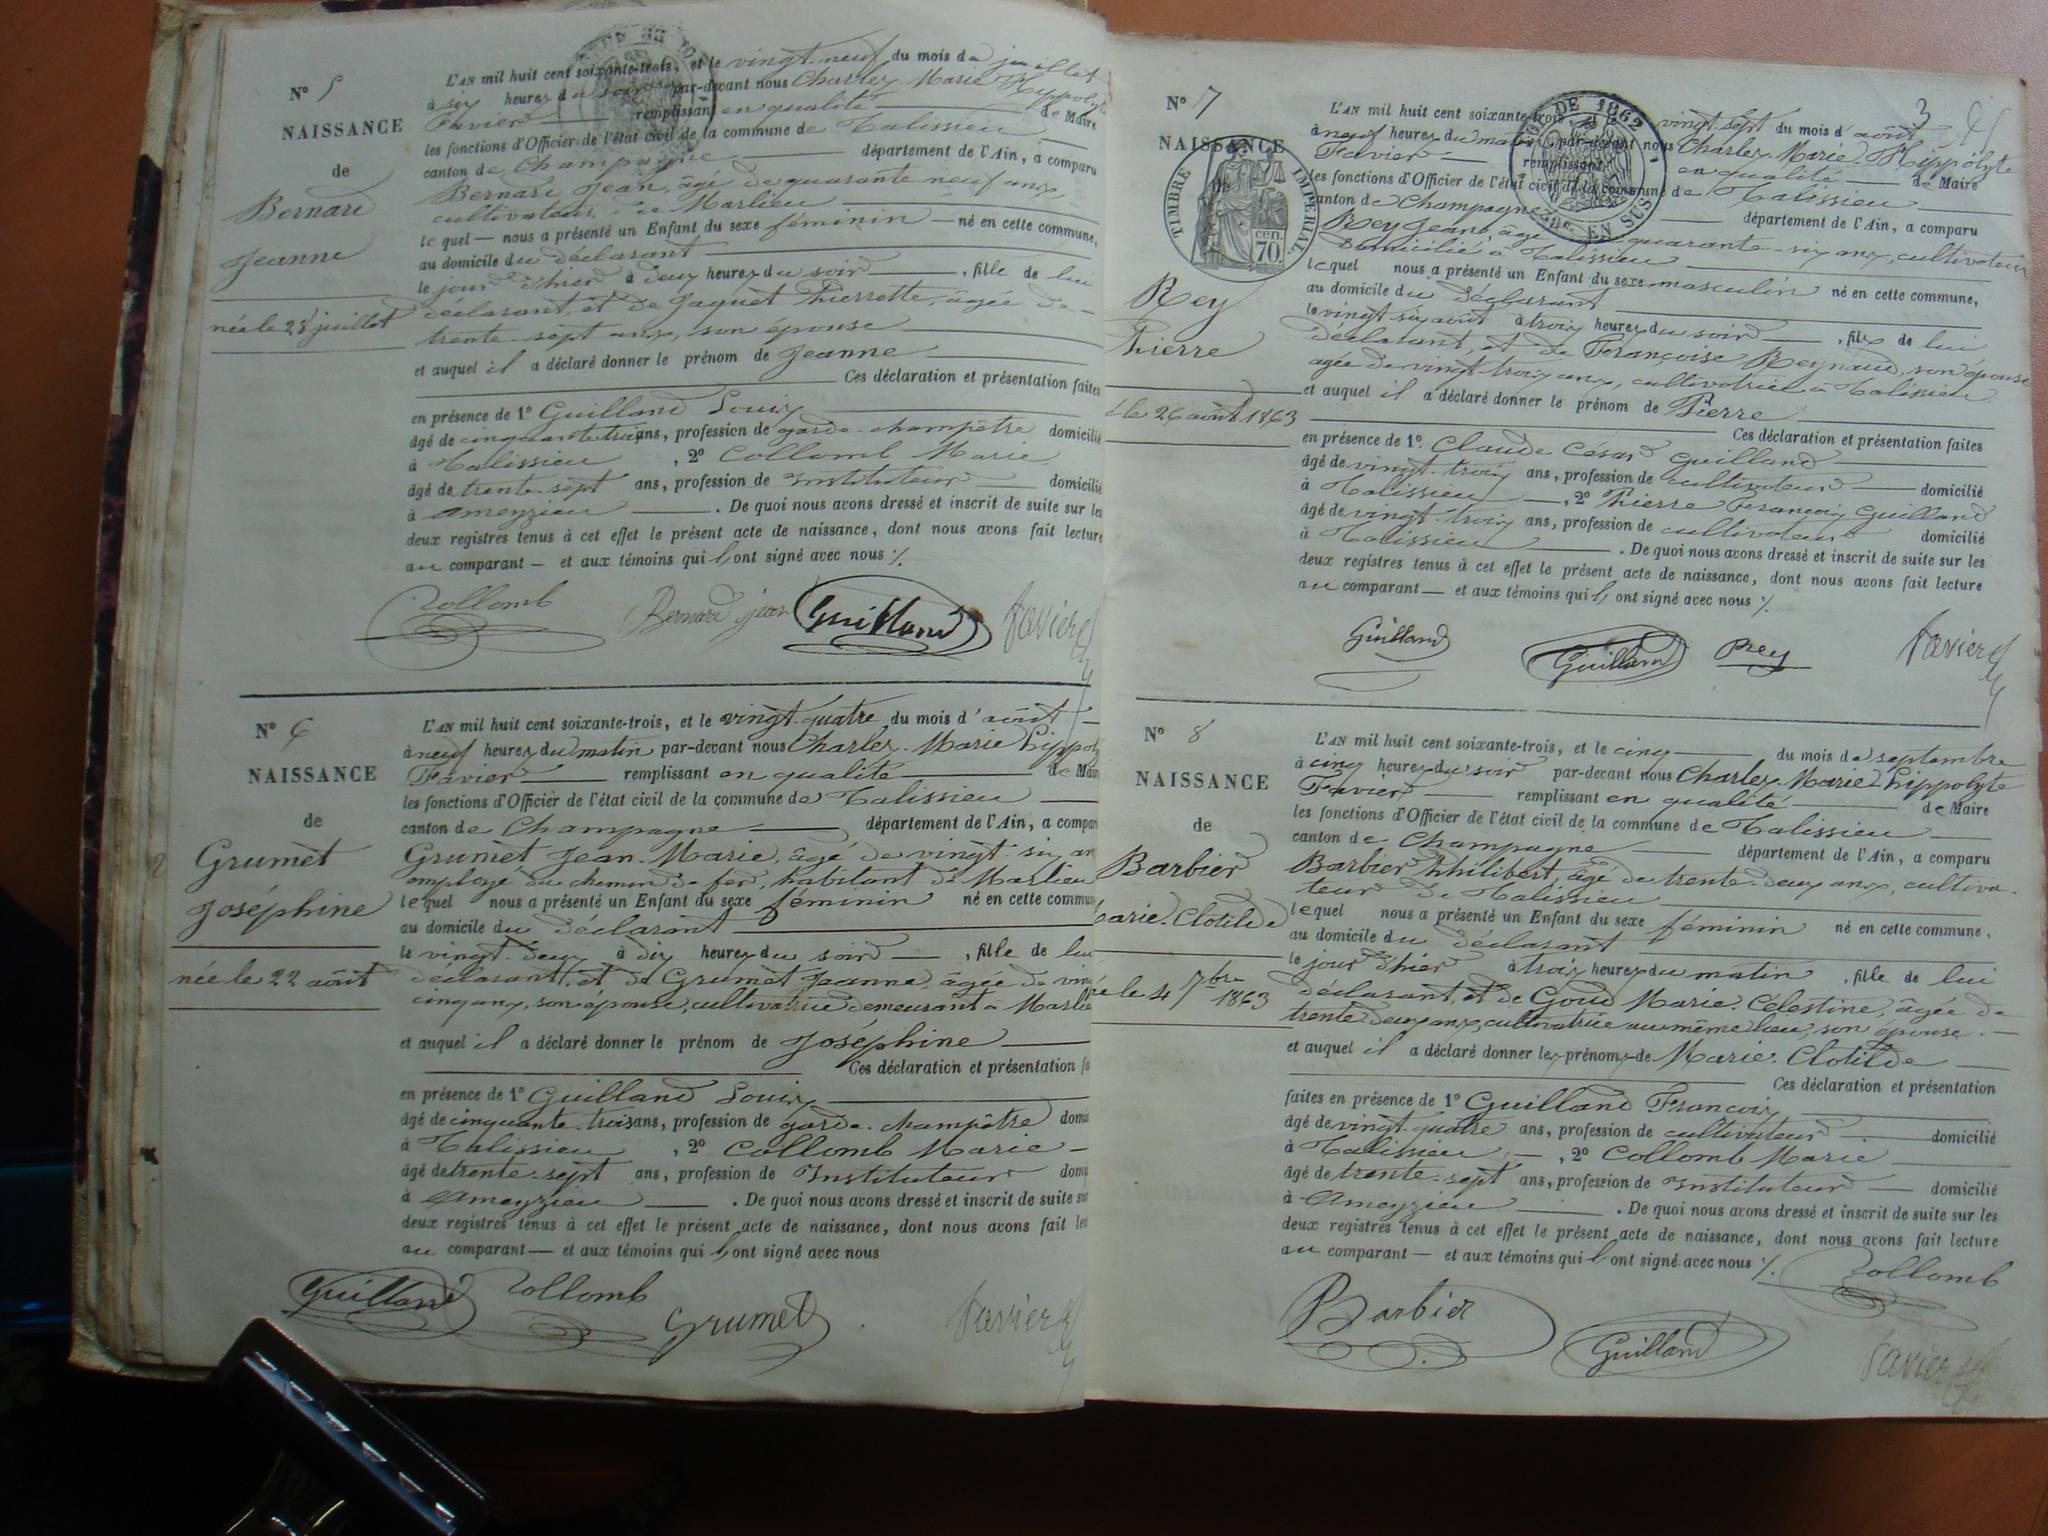 N° 5
NAISSANCE
de
Bernard
Jeanne
née le 28 juillet
L'AN mil huit cent soixante-trois, et le vingt-neuf du mois de juillet
à six heures du soir par-devant nous Charles Marie Hyppolyte
Favier remplissant en qualité de Maire
les fonctions d'Officier de l'état civil de la commune de Talissieu
canton de Champagne département de l'Ain, a comparu
Bernard Jean, âgé de quarante neuf ans,
cultivateur, de Marlieu
lequel — nous a présenté un Enfant du sexe féminin — né en cette commune,
au domicile du déclarant
le jour d'hier à deux heures du soir , fille de lui
déclarant, et de Jaquet Pierrette, âgée de
trente-sept ans, son épouse
et auquel il a déclaré donner le prénom de Jeanne
Ces déclaration et présentation faites
en présence de 1° Guilland Louis
âgé de cinquante trois ans, profession de garde-champêtre domicilié
à Talissieu , 2° Collomb Marie
âgé de trente-sept ans, profession de Instituteur domicilié
à Ameyzieu . De quoi nous avons dressé et inscrit de suite sur les
deux registres tenus à cet effet le présent acte de naissance, dont nous avons fait lecture
au comparant — et aux témoins qui l'ont signé avec nous ./.
Collomb Bernard jean Guilland Favier
N° 6
NAISSANCE
de
Grumet
Joséphine
née le 22 août
L'AN mil huit cent soixante-trois, et le vingt-quatre du mois d'août
à neuf heures du matin par-devant nous Charles-Marie hippoly
Favier remplissant en qualité de Maire
les fonctions d'Officier de l'état civil de la commune de Talissieu
canton de Champagne département de l'Ain, a compar
Grumet Jean-Marie, âgé de vingt-six an
employé du chemin de fer, habitant de Marlieu
lequel nous a présenté un Enfant du sexe féminin né en cette commu
au domicile du déclarant
le vingt-deux à dix heures du soir — , fille de lui
déclarant, et de Grumet Jeanne, âgée de vin
cinq ans, son épouse, cultivatrice demeurant à Marlie
et auquel il a déclaré donner le prénom de Joséphine
Ces déclaration et présentation fa
en présence de 1° Guilland Louis
âgé de cinquante-trois ans, profession de garde-champêtre domi
à Talissieu , 2° Collomb Marie —
âgé de trente-sept ans, profession de Instituteur domi
à Ameyzieu . De quoi nous avons dressé et inscrit de suite su
deux registres tenus à cet effet le présent acte de naissance, dont nous avons fait lec
au comparant — et aux témoins qui l'ont signé avec nous
Guilland Collomb Grumet Favier
3
N° 7
NAISSANCE
de
TIMBRE IMPÉRIAL
70 cen.
DE 1862
EN SUS
Rey
Pierre
le 26 août 1863
L'AN mil huit cent soixante-trois, et le vingt-sept du mois d'août
à neuf heures du matin par-devant nous Charles-Marie-Hippolyte
Favier — remplissant en qualité de Maire
les fonctions d'Officier de l'état civil de la commune de Talissieu
canton de Champagne département de l'Ain, a comparu
Rey Jean, âgé quarante-six ans, cultivateur
domicilié à Talissieu
lequel nous a présenté un Enfant du sexe masculin né en cette commune,
au domicile du déclarant
le vingt-six août à trois heures du soir , fils de lui
déclarant, et de Françoise Reynaud, son épouse
agée de vingt-trois ans, cultivatrice à Talissieu
et auquel il a déclaré donner le prénom de Pierre
Ces déclaration et présentation faites
en présence de 1° Claude César Guilland
âgé de vingt-trois ans, profession de cultivateur domicilié
à Talissieu , 2° Pierre François Guilland
âgé de vingt-trois ans, profession de cultivateur domicilié
à Talissieu . De quoi nous avons dressé et inscrit de suite sur les
deux registres tenus à cet effet le présent acte de naissance, dont nous avons fait lecture
au comparant — et aux témoins qui l'ont signé avec nous ./.
Guilland Guilland Rey Favier
N° 8
NAISSANCE
de
Barbier
Marie-Clotilde
née le 4 7bre 1863
L'AN mil huit cent soixante-trois, et le cinq du mois de septembre
à cinq heures du soir par-devant nous Charles-Marie-hippolyte
Favier remplissant en qualité de Maire
les fonctions d'Officier de l'état civil de la commune de Talissieu
canton de Champagne département de l'Ain, a comparu
Barbier Philibert, âgé de trente-deux ans, cultiva-
teur de Talissieu
lequel nous a présenté un Enfant du sexe féminin né en cette commune,
au domicile du déclarant
le jour d'hier à trois heures du matin , fille de lui
déclarant, et de Goud Marie-Célestine, âgée de
trente deux ans, cultivatrice au même lieu, son épouse. —
et auquel il a déclaré donner les prénoms de Marie-Clotilde
Ces déclaration et présentation
faites en présence de 1° Guilland François
âgé de vingt-quatre ans, profession de cultivateur domicilié
à Talissieu — , 2° Collomb Marie
âgé de trente-sept ans, profession de Instituteur — domicilié
à Ameyzieu . De quoi nous avons dressé et inscrit de suite sur les
deux registres tenus à cet effet le présent acte de naissance, dont nous avons fait lecture
au comparant — et aux témoins qui l'ont signé avec nous ./.
Collomb
Barbier Guilland Favier